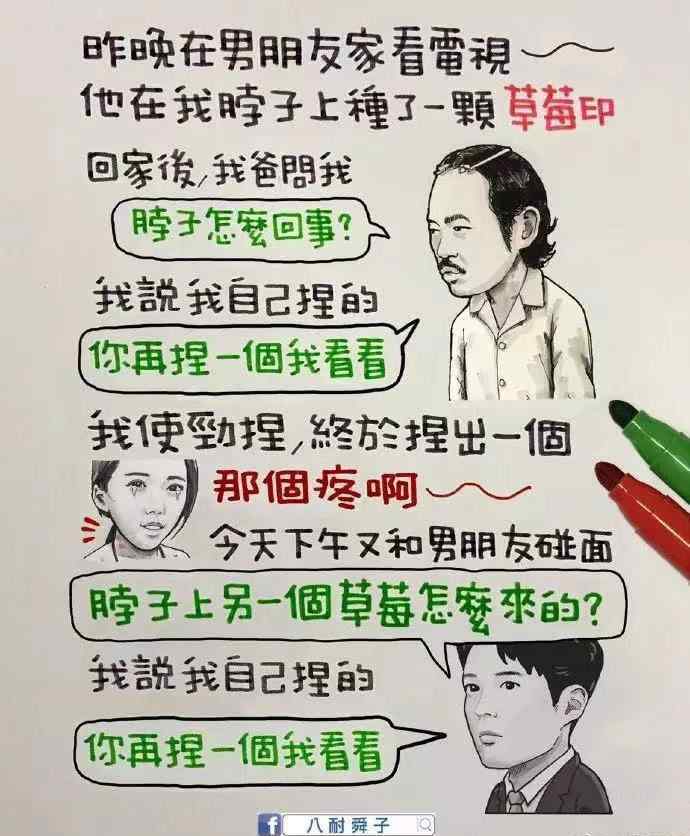 昨晚在男朋友家看電視
他在我脖子上種了一顆草莓印
回家後,我爸問我
脖子怎麼回事?
我說我自己捏的
你再捏一個我看看
我使勁捏,終於捏出一個
那個疼啊
今天下午又和男朋友碰面
脖子上另一個草莓怎麼來的?
我說我自己捏的
你再捏一個我看看
八耐舜子